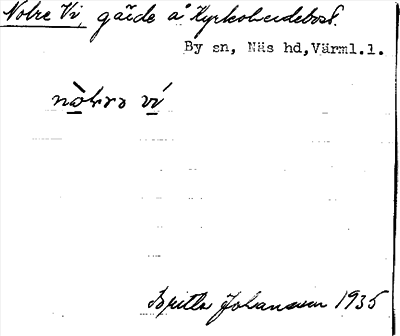 Nolre Vi, gärde å Kyrkoherdebost.
By sn, Näs hd, Värml.l.
nòlrə ví
Britta Johansson 1935